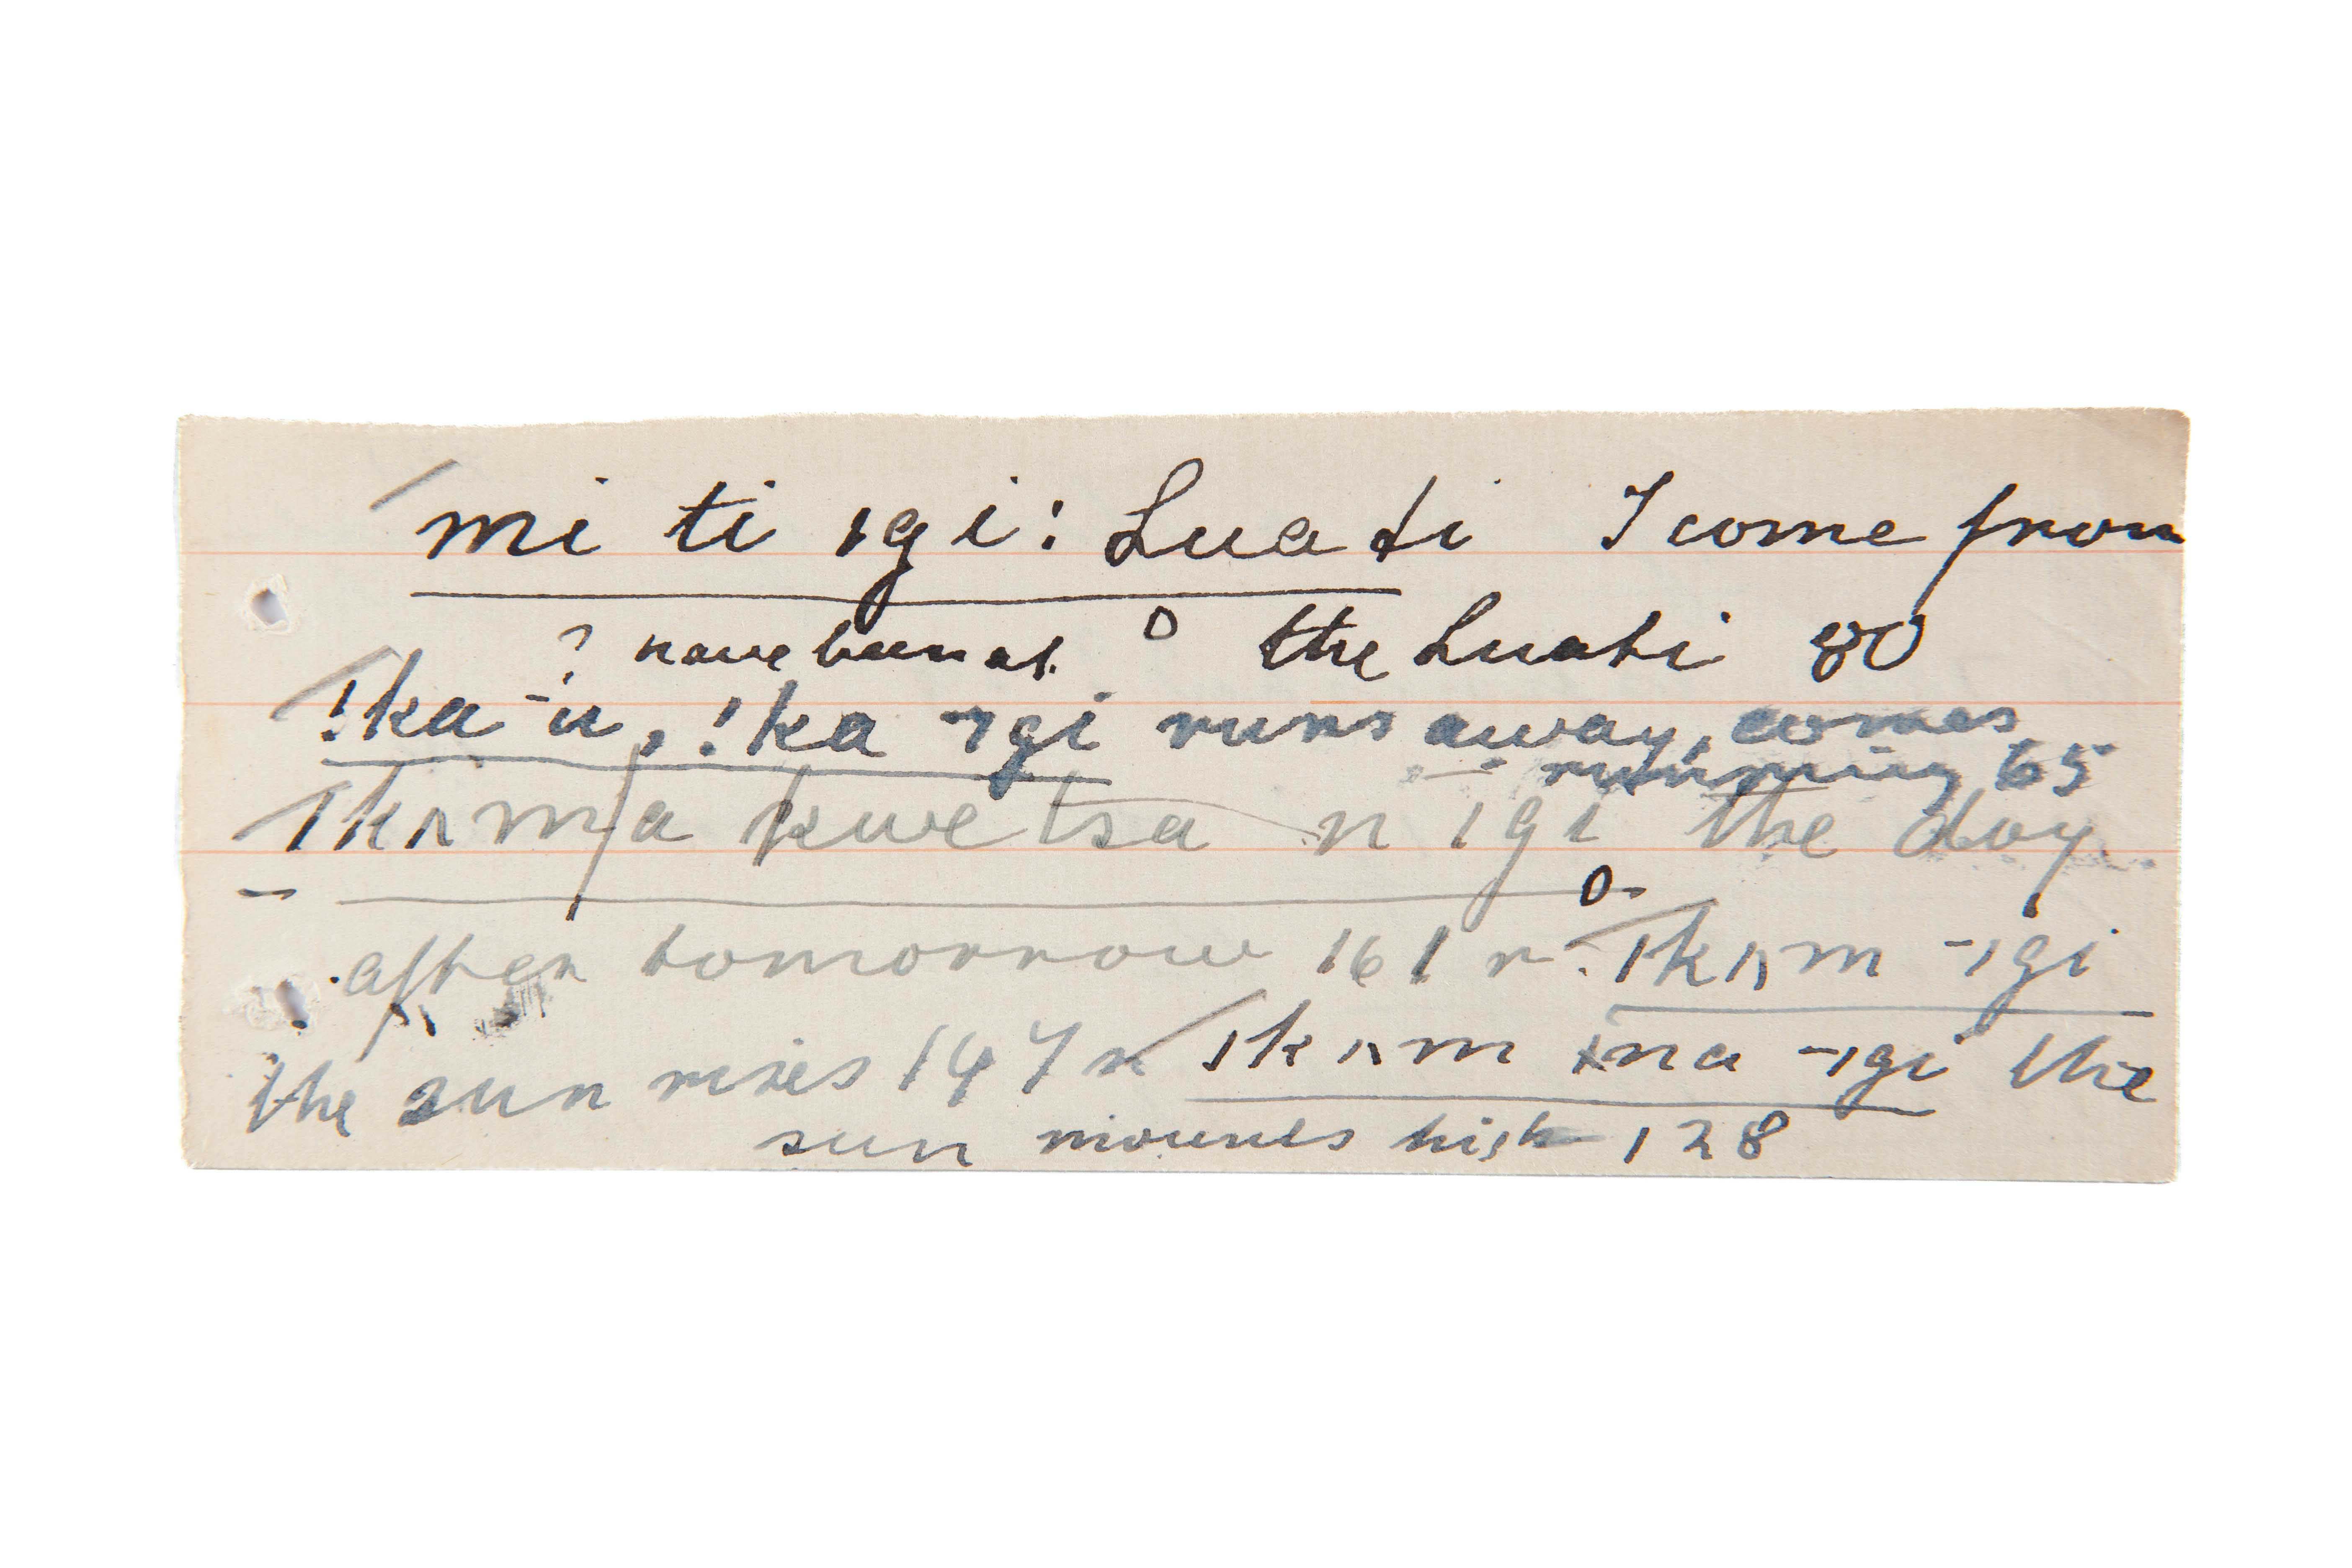 mi ti ıgi: Luati I come from
? have been at. the Luati 80
!ka -u, !ka -ıgi runs away, comes
running 65
ıkʌm/a kwe tsa n ıgi the day
after tomorrow 161 r. ıkʌm -ıgi
the sun rises 147 r ıkʌm na -ıgi the
sun mounts high 128